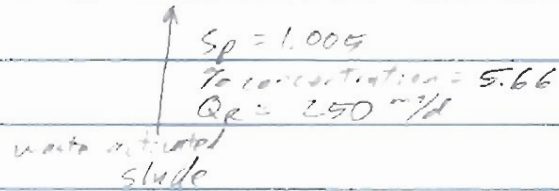 Sp = 1.005
% concentration = 5.66
QR = 250 m³/d
waste activated
slude